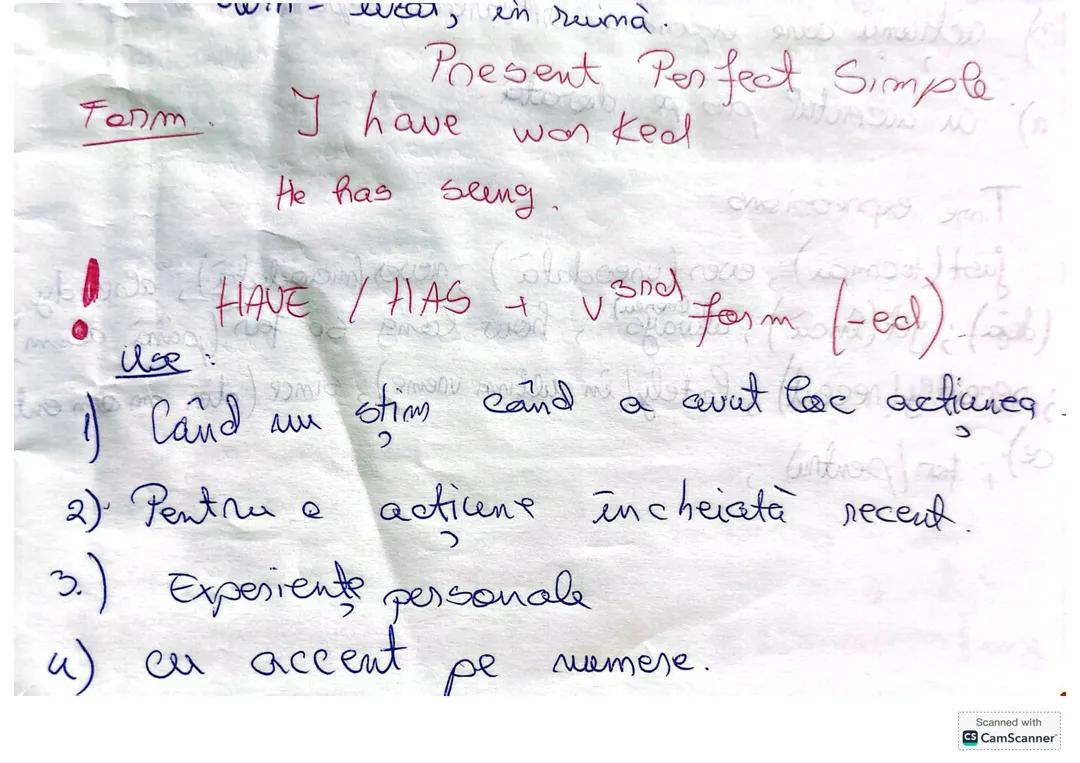 în ruină.
Present Perfect Simple
Form. I have worked
He has seung.
! HAVE / HAS + V 3rd form (-ed).
Use:
1) Când nu știm când a avut loc acțiunea
2) Pentru o acțiune încheiată recent.
3.) Experiențe personale
4) cu accent pe numere.
Scanned with
CS CamScanner